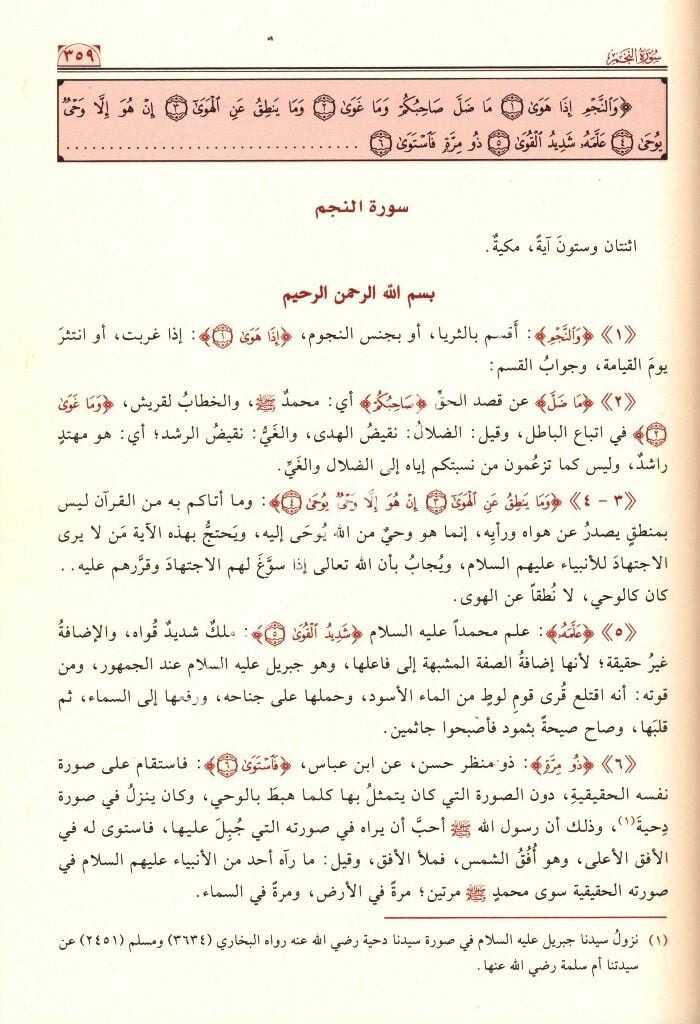 سورة النجم
٣٥٩
﴿وَٱلنَّجْمِ إِذَا هَوَىٰ ۝١ مَا ضَلَّ صَاحِبُكُمْ وَمَا غَوَىٰ ۝٢ وَمَا يَنطِقُ عَنِ ٱلْهَوَىٰٓ ۝٣ إِنْ هُوَ إِلَّا وَحْىٌ
يُوحَىٰ ۝٤ عَلَّمَهُۥ شَدِيدُ ٱلْقُوَىٰ ۝٥ ذُو مِرَّةٍ فَٱسْتَوَىٰ ۝٦ ......................................
سورة النجم
اثنتان وستونَ آيةً، مكيةٌ.
بسم الله الرحمن الرحيم
《١》 ﴿وَٱلنَّجْمِ﴾: أَقسم بالثريا، أو بجنس النجوم، ﴿إِذَا هَوَىٰ ۝١﴾: إذا غربت، أو انتثرَ
يومَ القيامة، وجوابُ القسم:
《٢》 ﴿مَا ضَلَّ﴾ عن قصد الحقِّ ﴿صَاحِبُكُمْ﴾ أي: محمدٌ ﷺ، والخطابُ لقريش، ﴿وَمَا غَوَىٰ
۝٢﴾ في اتباع الباطل، وقيل: الضلالُ: نقيضُ الهدى، والغَيُّ: نقيضُ الرشد؛ أي: هو مهتدٍ
راشدٌ، وليس كما تزعُمون من نسبتكم إياه إلى الضلال والغَيِّ.
《٣ - ٤》 ﴿وَمَا يَنطِقُ عَنِ ٱلْهَوَىٰٓ ۝٣ إِنْ هُوَ إِلَّا وَحْىٌ يُوحَىٰ ۝٤﴾: وما أتاكم به من القرآن ليس
بمنطقٍ يصدرُ عن هواه ورأيِه، إنما هو وحيٌ من الله يُوحَى إليه، ويَحتجُّ بهذه الآية مَن لا يرى
الاجتهادَ للأنبياء عليهم السلام، ويُجابُ بأن الله تعالى إذا سوَّغَ لهم الاجتهادَ وقرَّرهم عليه..
كان كالوحي، لا نُطقاً عن الهوى.
《٥》 ﴿عَلَّمَهُۥ﴾: علم محمداً عليه السلام ﴿شَدِيدُ ٱلْقُوَىٰ ۝٥﴾: ملكٌ شديدٌ قُواه، والإضافةُ
غيرُ حقيقة؛ لأنها إضافةُ الصفة المشبهة إلى فاعلها، وهو جبريل عليه السلام عند الجمهور، ومن
قوته: أنه اقتلع قُرى قومِ لوطٍ من الماء الأسود، وحملها على جناحه، ورفعها إلى السماء، ثم
قلبَها، وصاح صيحةً بثمود فأصبحوا جاثمين.
《٦》 ﴿ذُو مِرَّةٍ﴾: ذو منظر حسن، عن ابن عباس، ﴿فَٱسْتَوَىٰ ۝٦﴾: فاستقام على صورة
نفسه الحقيقيةِ، دون الصورة التي كان يتمثلُ بها كلما هبطَ بالوحي، وكان ينزلُ في صورة
دِحيةَ(١)، وذلك أن رسول الله ﷺ أحبَّ أن يراه في صورته التي جُبِلَ عليها، فاستوى له في
الأفق الأعلى، وهو أُفُقُ الشمس، فملأ الأفق، وقيل: ما رآه أحد من الأنبياء عليهم السلام في
صورته الحقيقية سوى محمدٍ ﷺ مرتين؛ مرةً في الأرض، ومرةً في السماء.
(١) نزولُ سيدنا جبريل عليه السلام في صورة سيدنا دحية رضي الله عنه رواه البخاري (٣٦٣٤) ومسلم (٢٤٥١) عن
سيدتنا أم سلمة رضي الله عنها.